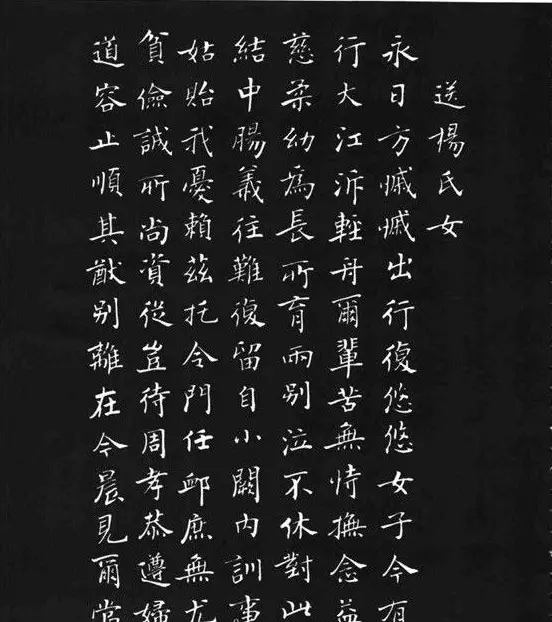 送楊氏女
永日方慽慽出行復悠悠女子今有
行大江泝輕舟爾輩苦無恃撫念益
慈柔幼為長所育兩別泣不休對此
結中腸義往難復留自小闕內訓事
姑貽我憂賴茲托令門任卹庶無尤
貧儉誠所尚資從豈待周孝恭遵婦
道容止順其猷別離在今晨見爾當